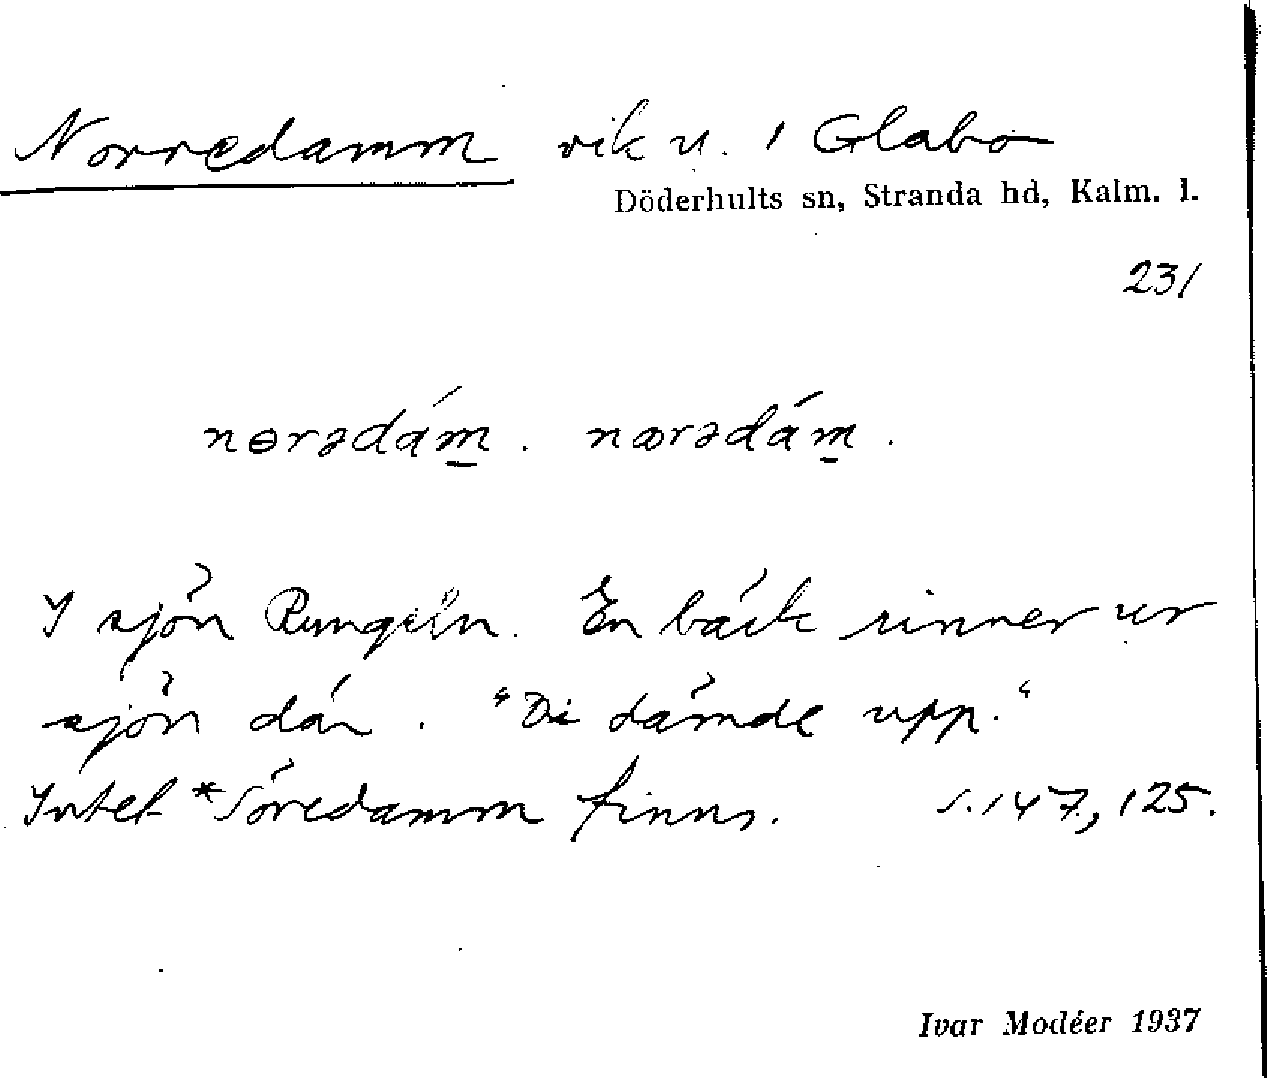 Norredamm vik u. / Glabo
Döderhults sn, Stranda hd, Kalm. l.
231
nɵrədám̱. nœrədám̱.
I sjön Rungeln. En bäck rinner ur
sjön där. "Di dämde upp."
Intet *Söredamm finns. s. 147, 125.
Ivar Modéer 1937